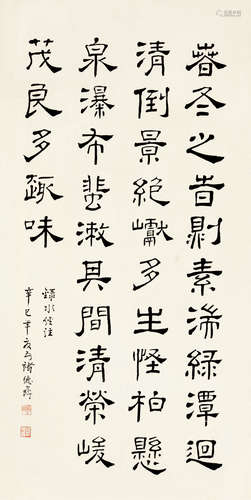 萅冬之旹則素湍綠潭迴
清倒景絕巘多生怪柏懸
泉瀑布蜚漱其間清榮峻
茂良多趣味
錄水經注
辛巳年夏